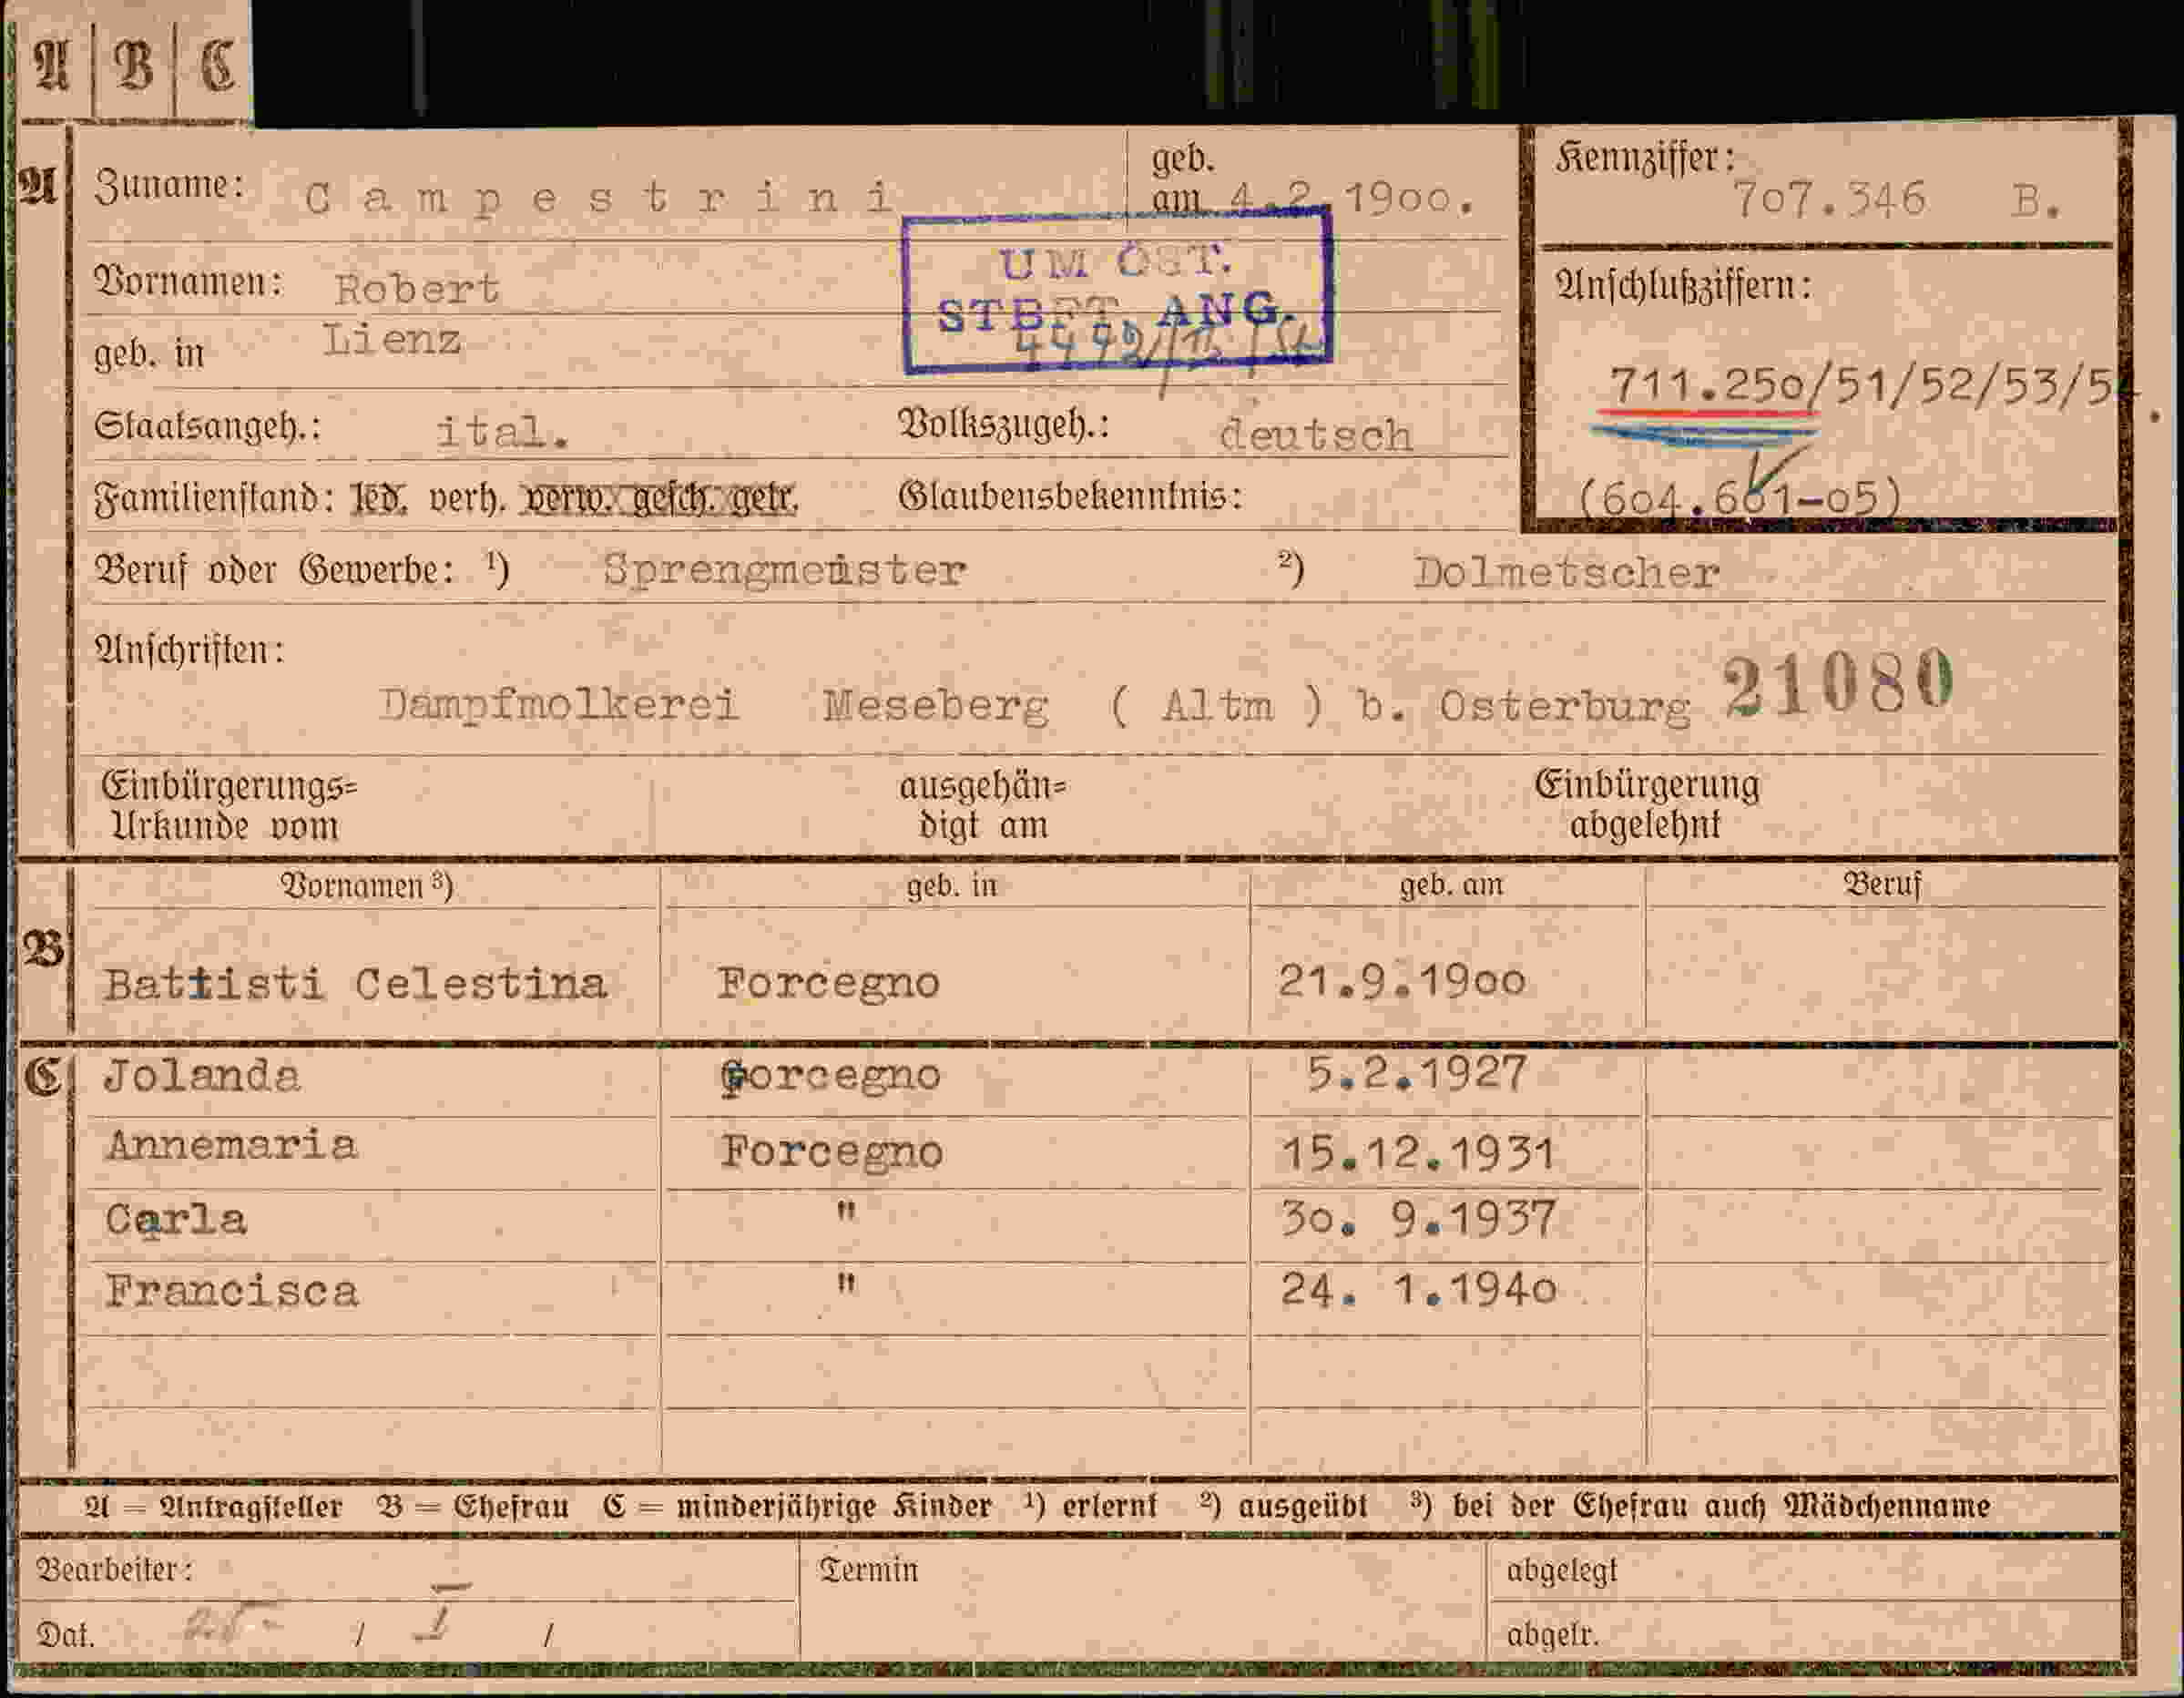 A | B | C
A Zuname: Campestrini geb. am 4.2.1900. Kennziffer: 707.346 B.
Vornamen: Robert
UM ÖST.
STBFT. ANG.
Anschlußziffern:
geb. in Lienz
711.250/51/52/53/54.
Staatsangeh.: ital. Volkszugeh.: deutsch
Familienstand: led. verh. verw. gesch. getr. Glaubensbekenntnis: (604.661-05)
Beruf oder Gewerbe: 1) Sprengmeister 2) Dolmetscher
Anschriften:
Dampfmolkerei Meseberg ( Altm ) b. Osterburg 21080
Einbürgerungs= Urkunde vom ausgehän= digt am Einbürgerung abgelehnt
Vornamen 3) geb. in geb. am Beruf
B Battisti Celestina Forcegno 21.9.1900
C Jolanda Forcegno 5.2.1927
Annemaria Forcegno 15.12.1931
Carla " 30. 9.1937
Francisca " 24. 1.1940
A = Antragsteller B = Ehefrau C = minderjährige Kinder 1) erlernt 2) ausgeübt 3) bei der Ehefrau auch Mädchenname
Bearbeiter: Termin abgelegt
Dat. / I / abgetr.